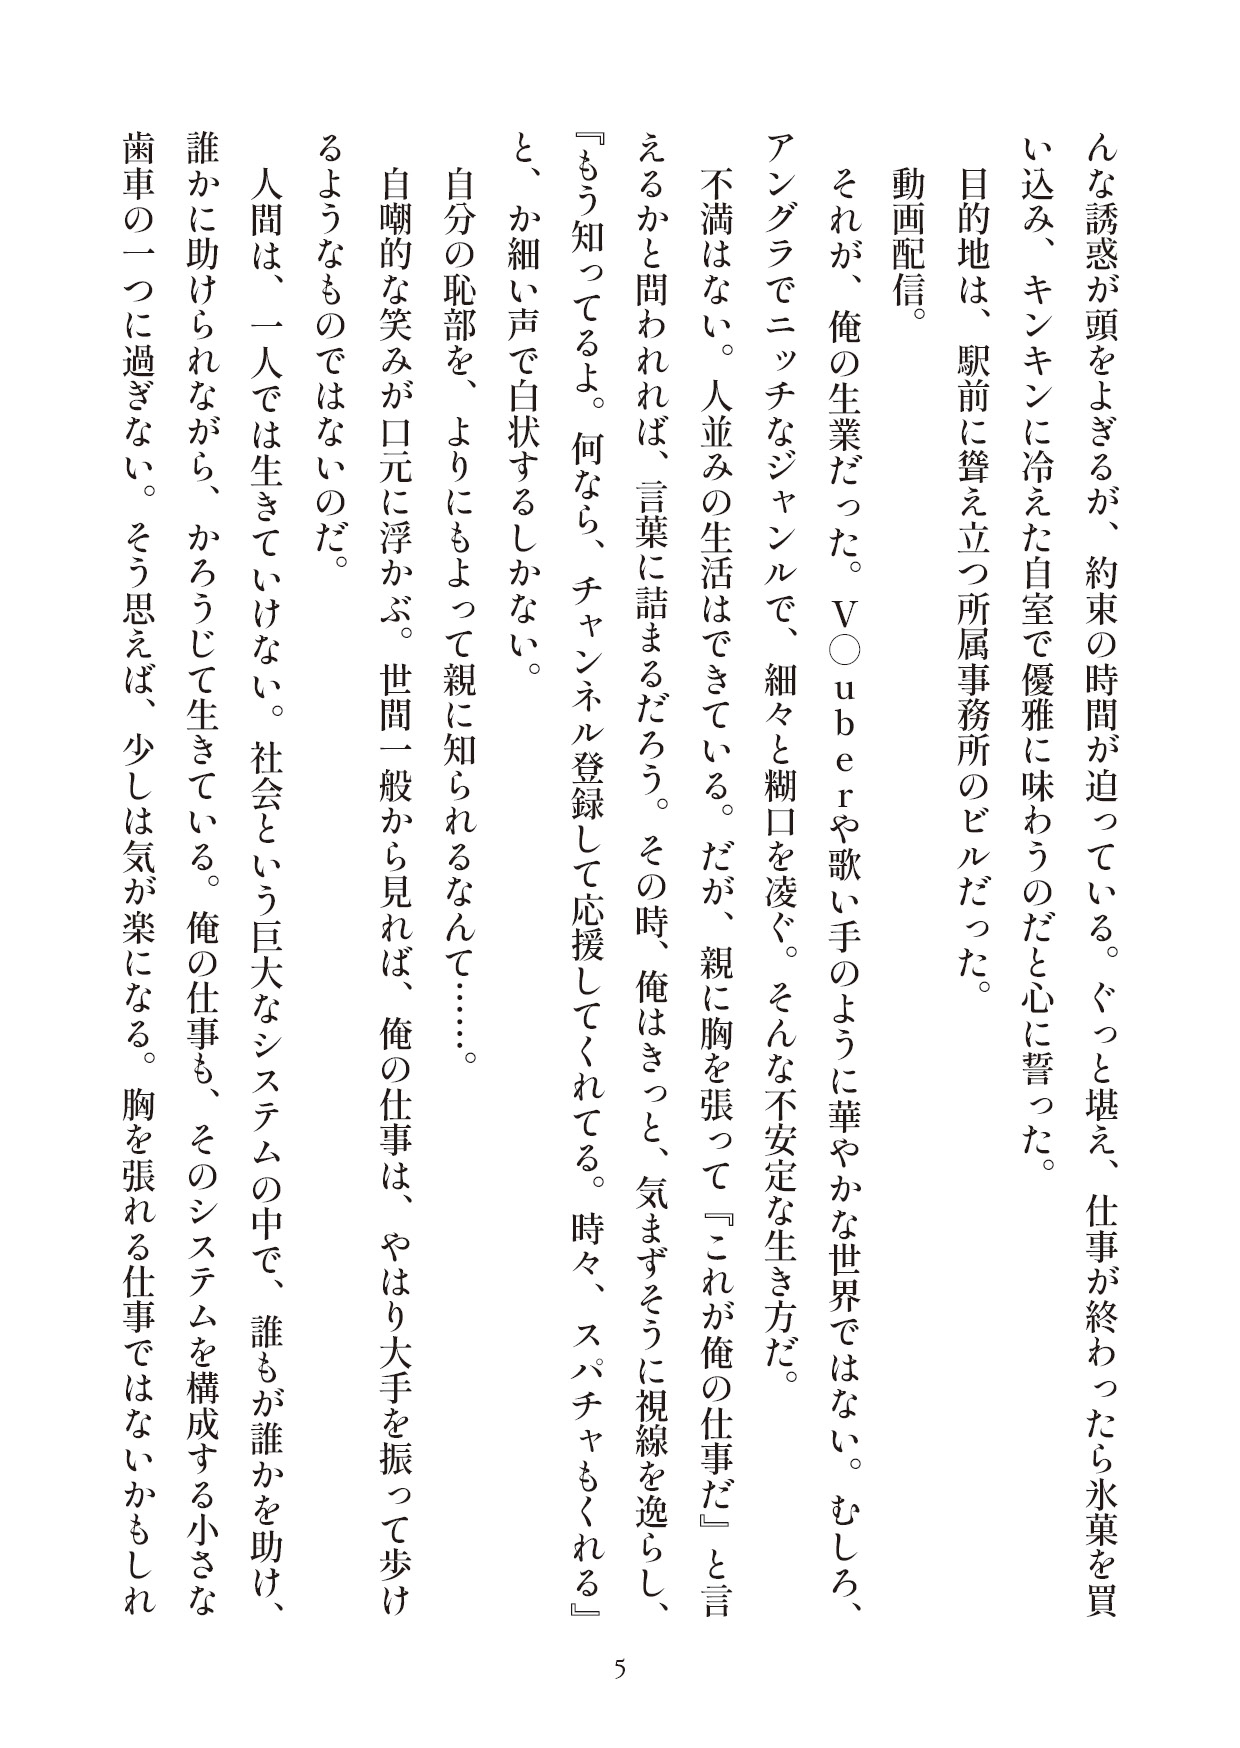 んな誘惑が頭をよぎるが、約束の時間が迫っている。ぐっと堪え、仕事が終わったら氷菓を買
い込み、キンキンに冷えた自室で優雅に味わうのだと心に誓った。
目的地は、駅前に聳え立つ所属事務所のビルだった。
動画配信。
それが、俺の生業だった。V〇uberや歌い手のように華やかな世界ではない。むしろ、
アングラでニッチなジャンルで、細々と糊口を凌ぐ。そんな不安定な生き方だ。
不満はない。人並みの生活はできている。だが、親に胸を張って『これが俺の仕事だ』と言
えるかと問われれば、言葉に詰まるだろう。その時、俺はきっと、気まずそうに視線を逸らし、
『もう知ってるよ。何なら、チャンネル登録して応援してくれてる。時々、スパチャもくれる』
と、か細い声で白状するしかない。
自分の恥部を、よりにもよって親に知られるなんて……。
自嘲的な笑みが口元に浮かぶ。世間一般から見れば、俺の仕事は、やはり大手を振って歩け
るようなものではないのだ。
人間は、一人では生きていけない。社会という巨大なシステムの中で、誰もが誰かを助け、
誰かに助けられながら、かろうじて生きている。俺の仕事も、そのシステムを構成する小さな
歯車の一つに過ぎない。そう思えば、少しは気が楽になる。胸を張れる仕事ではないかもしれ
5